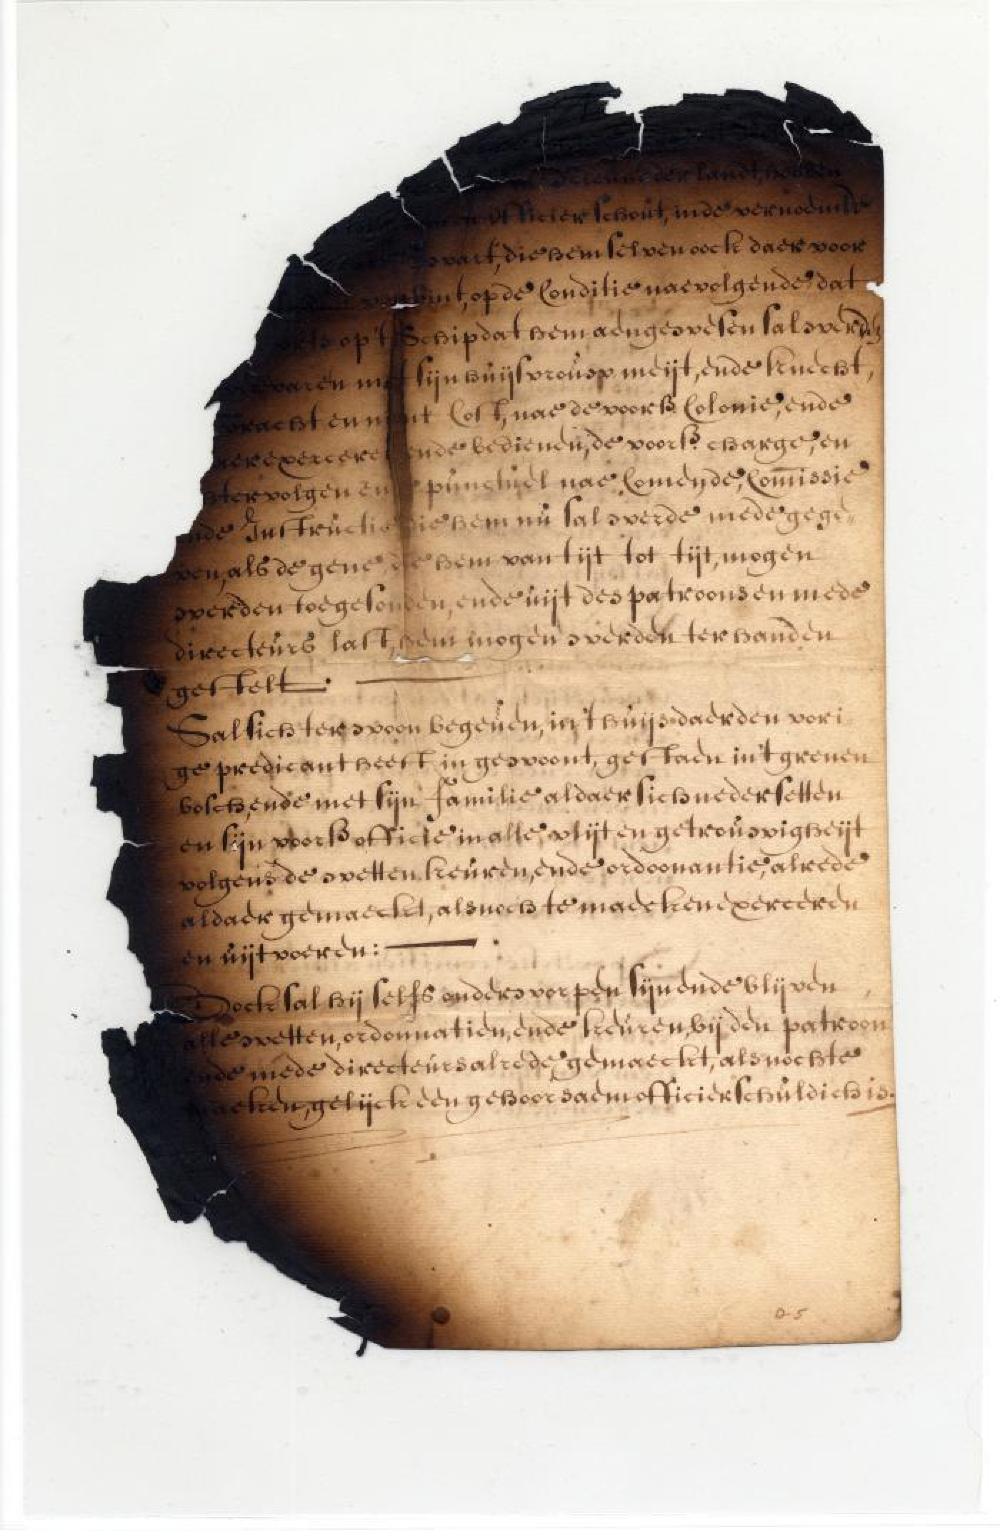 der landt, hooden
officier schout, inde vernoemde
die hem selven oock daer voor
verbint, op de Conditie naevolgende, dat
op 't Schip dat hem aengewesen sal werden
vaeren met sijn huijsvrouw meijt, ende knecht,
vracht en mont Cost, nae de voorsz Colonie, ende
aer exerceren ende bedienen, de voorsz. charge, en
achtervolgen en punctuel nae Comende, Com̄issie
ende Instructie die hem nu sal werde mede gege-
ven, als de gene die hem van tijt tot tijt, mogen
werden toegesonden, ende uijt des patroons en mede
directeurs last, hem mogen werden ter handen
gestelt.
Sal sich ter woon begeven, in 't huijs daer den vori
ge predicant heeft in gewoont, gestaen in 't grenen
bosch, ende met sijn familie aldaer sich nedersetten
en sijn voorsz officie in alle vlijt en getrouwigheijt
volgens de wetten keuren, ende ordoonantie, alrede
aldaer gemaeckt, als noch te maecken exerceren
en uijtvoeren:
Oock sal hij selfs onderworpen sijn ende blijven
alle wetten, ordonnatien, ende keuren, bij den patroon
ende mede directeurs alrede, gemaeckt, als noch te
maeken, gelijck een gehoorsaem officier schuldich is.
25